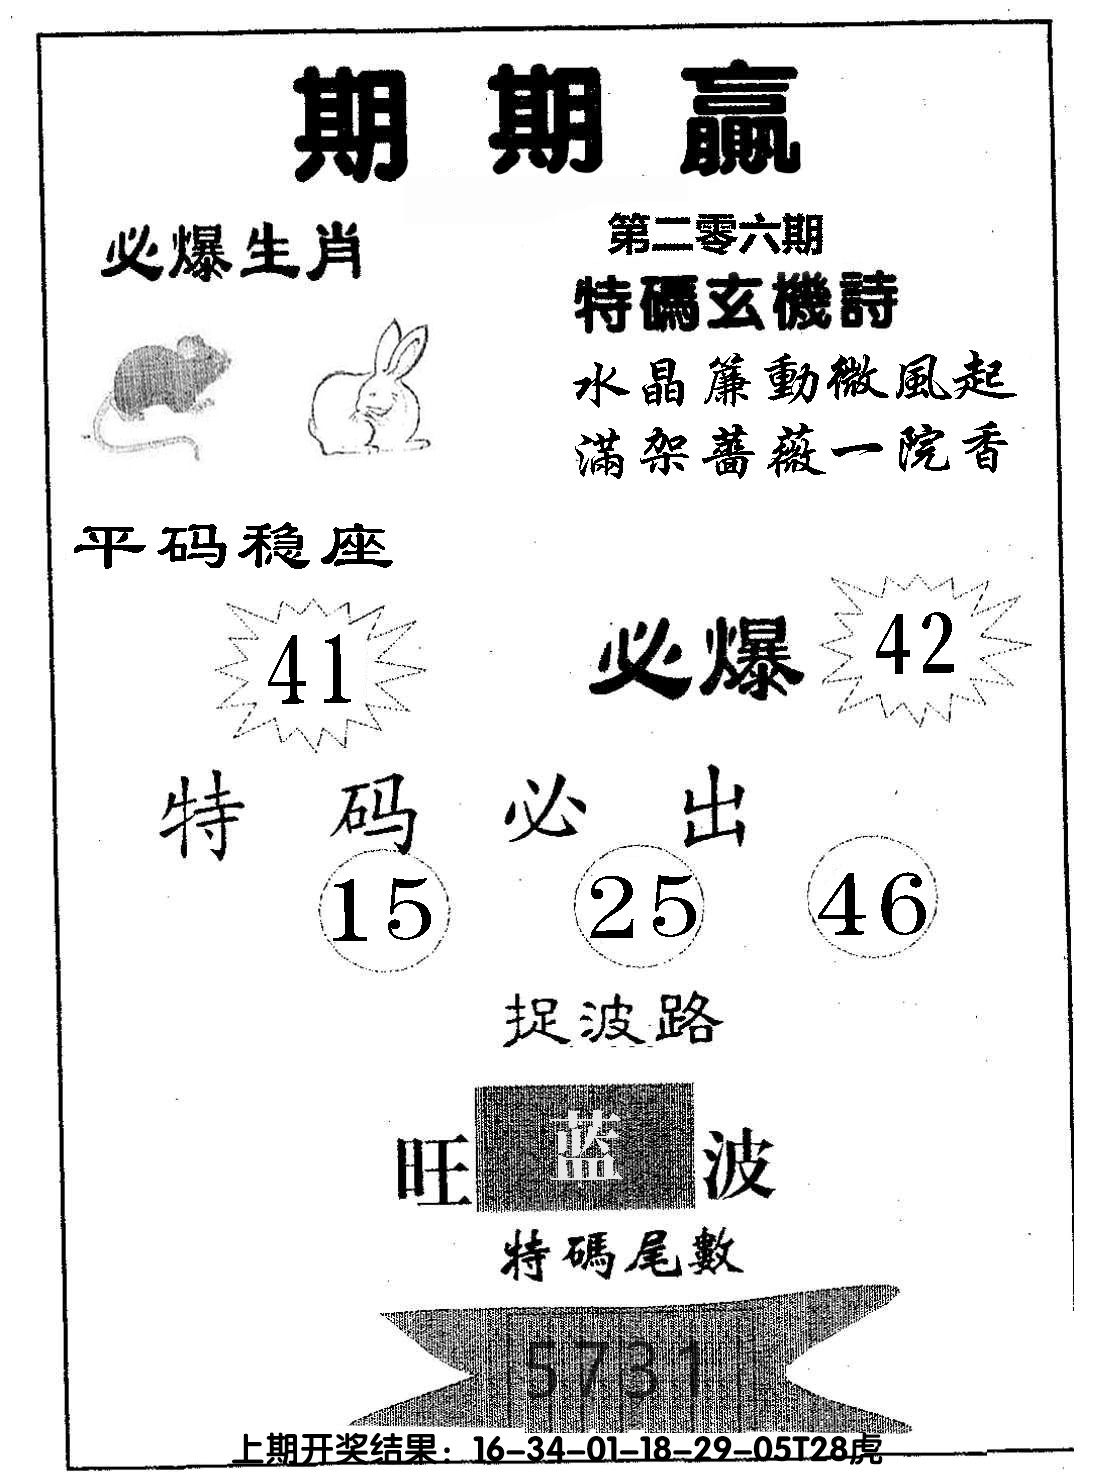 期期赢
必爆生肖
第二零六期
特碼玄機詩
水晶簾動微風起
滿架薔薇一院香
平码稳座
41
必爆 42
特码必出
15 25 46
捉波路
旺蓝波
特碼尾數
5731
上期开奖结果：16-34-01-18-29-05T28虎